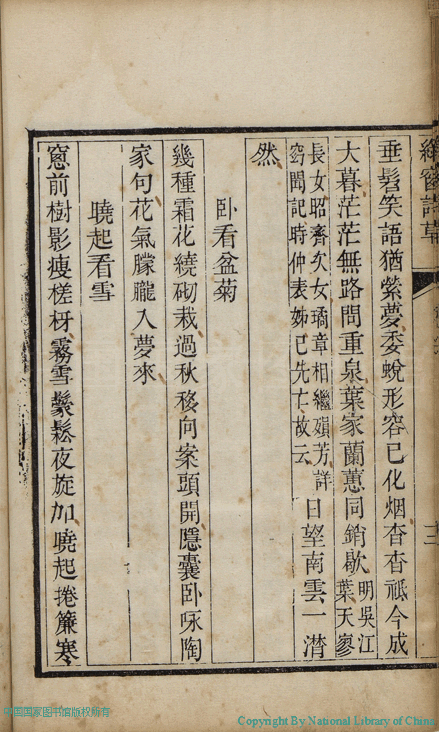 垂髫笑語猶縈夢委蛻形容已化烟杳杳祗今成
大暮茫茫無路問重泉葉家蘭蕙同銷歇明吳江葉天寥
長女昭齊次女瑤章相繼殞芳詳窈聞記時仲表姊已先亡故云日望南雲一潸
然
卧看盆菊
幾種霜花繞砌栽過秋移向案頭開隱囊卧咏陶
家句花氣朦朧入夢來
曉起看雪
窻前樹影瘦槎枒霧雪鬖鬆夜旋加曉起捲簾寒
詩草
中国国家图书馆版权所有
Copyright By National Library of China